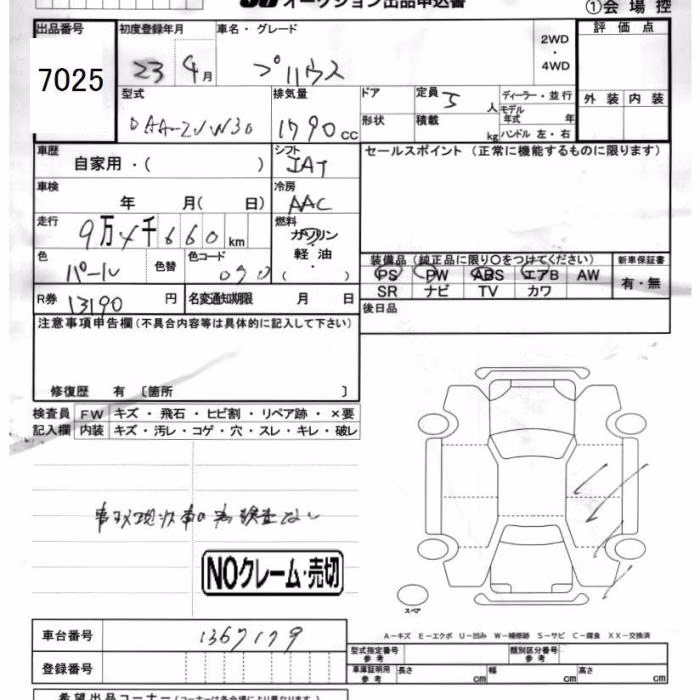 オークション出品申込書 ①会場控
出品番号 初度登録年月 車名・グレード 評価点
7025 23 年 9 月 プリウス 2WD・4WD
型式 排気量 ドア 定員 5 人 ディーラー・並行 外装 内装
DAA-ZVW30 1790 cc 形状 積載 kg モデル年式 年
ハンドル 左・右
車歴 自家用・( ) シフト IAT セールスポイント (正常に機能するものに限ります)
車検 年 月( 日) 冷房 AAC
走行 9万4千660 km 燃料 ガソリン・軽油・( )
色 パール 色替 色コード 070 装備品 (純正品に限り〇をつけてください) 新車保証書
PS PW ABS エアB AW 有・無
R券 13190 円 名変通知期限 月 日 SR ナビ TV カワ
注意事項申告欄(不具合内容等は具体的に記入して下さい) 後日品
修復歴 有 〔箇所 〕
検査員 FW キズ・飛石・ヒビ割・リペア跡・×要
記入欄 内装 キズ・汚レ・コゲ・穴・スレ・キレ・破レ
事故現状車の為検査なし
NOクレーム・売切
スペア
車台番号 1367179 A−キズ E−エクボ U−凹み W−補修跡 S−サビ C−腐食 XX−交換済
型式指定番号 参考 類別区分番号 参考
登録番号 車庫証明用 参考 長さ cm 幅 cm 高さ cm
希望出品コーナー